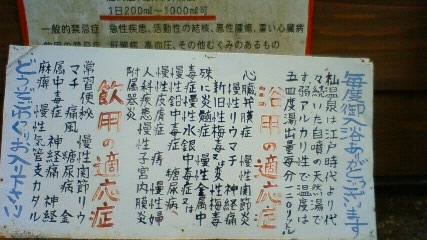 1日200㎖〜1000㎖可
一般的禁忌症 急性疾患、活動性の結核、悪性腫瘍、重い心臓病
肝臓病、高血圧、その他むくみのあるもの
毎度御入浴ありがとうございます
温泉は江戸時代より代
々続いた自噴の天然湯で
す。弱アルカリ性で温度は
五四度湯出量毎分二三〇リットル
浴用の適応症
心臓弁膜症 慢性関節炎
慢性リウマチ 神経痛
新旧性梅毒又は変性梅毒
殊に炎髄症 慢性金属中
毒症慢性水銀中毒症又は
慢性鉛中毒症 糖尿病
慢性皮膚症 痛病 慢性婦
人科疾患慢性子宮内膜炎
附属器炎
飲用の適応症
常習便秘 慢性関節リウ
マチ 痛風 糖尿病 金
属中毒症 神経痛 神経
麻痺 慢性気管支カタル
どうぞごゆっくりお入り下さい